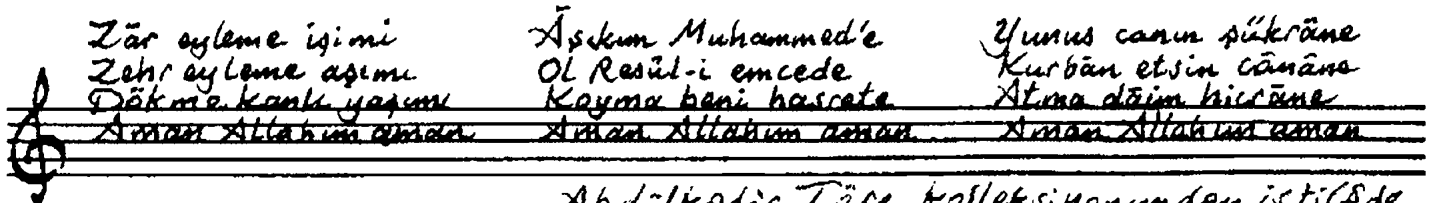 Zâr eyleme işimi
Zehr eyleme aşımı
Dökme kanlı yaşımı
Aman Allahım aman
Âşıkım Muhammed'e
Ol Resûl-i emcede
Koyma beni hasrete
Aman Allahım aman
Yunus canın şükrâne
Kurbân etsin cânâne
Atma dâim hicrâne
Aman Allahım aman
Abdülkadir Töre kolleksiyonundan istifade